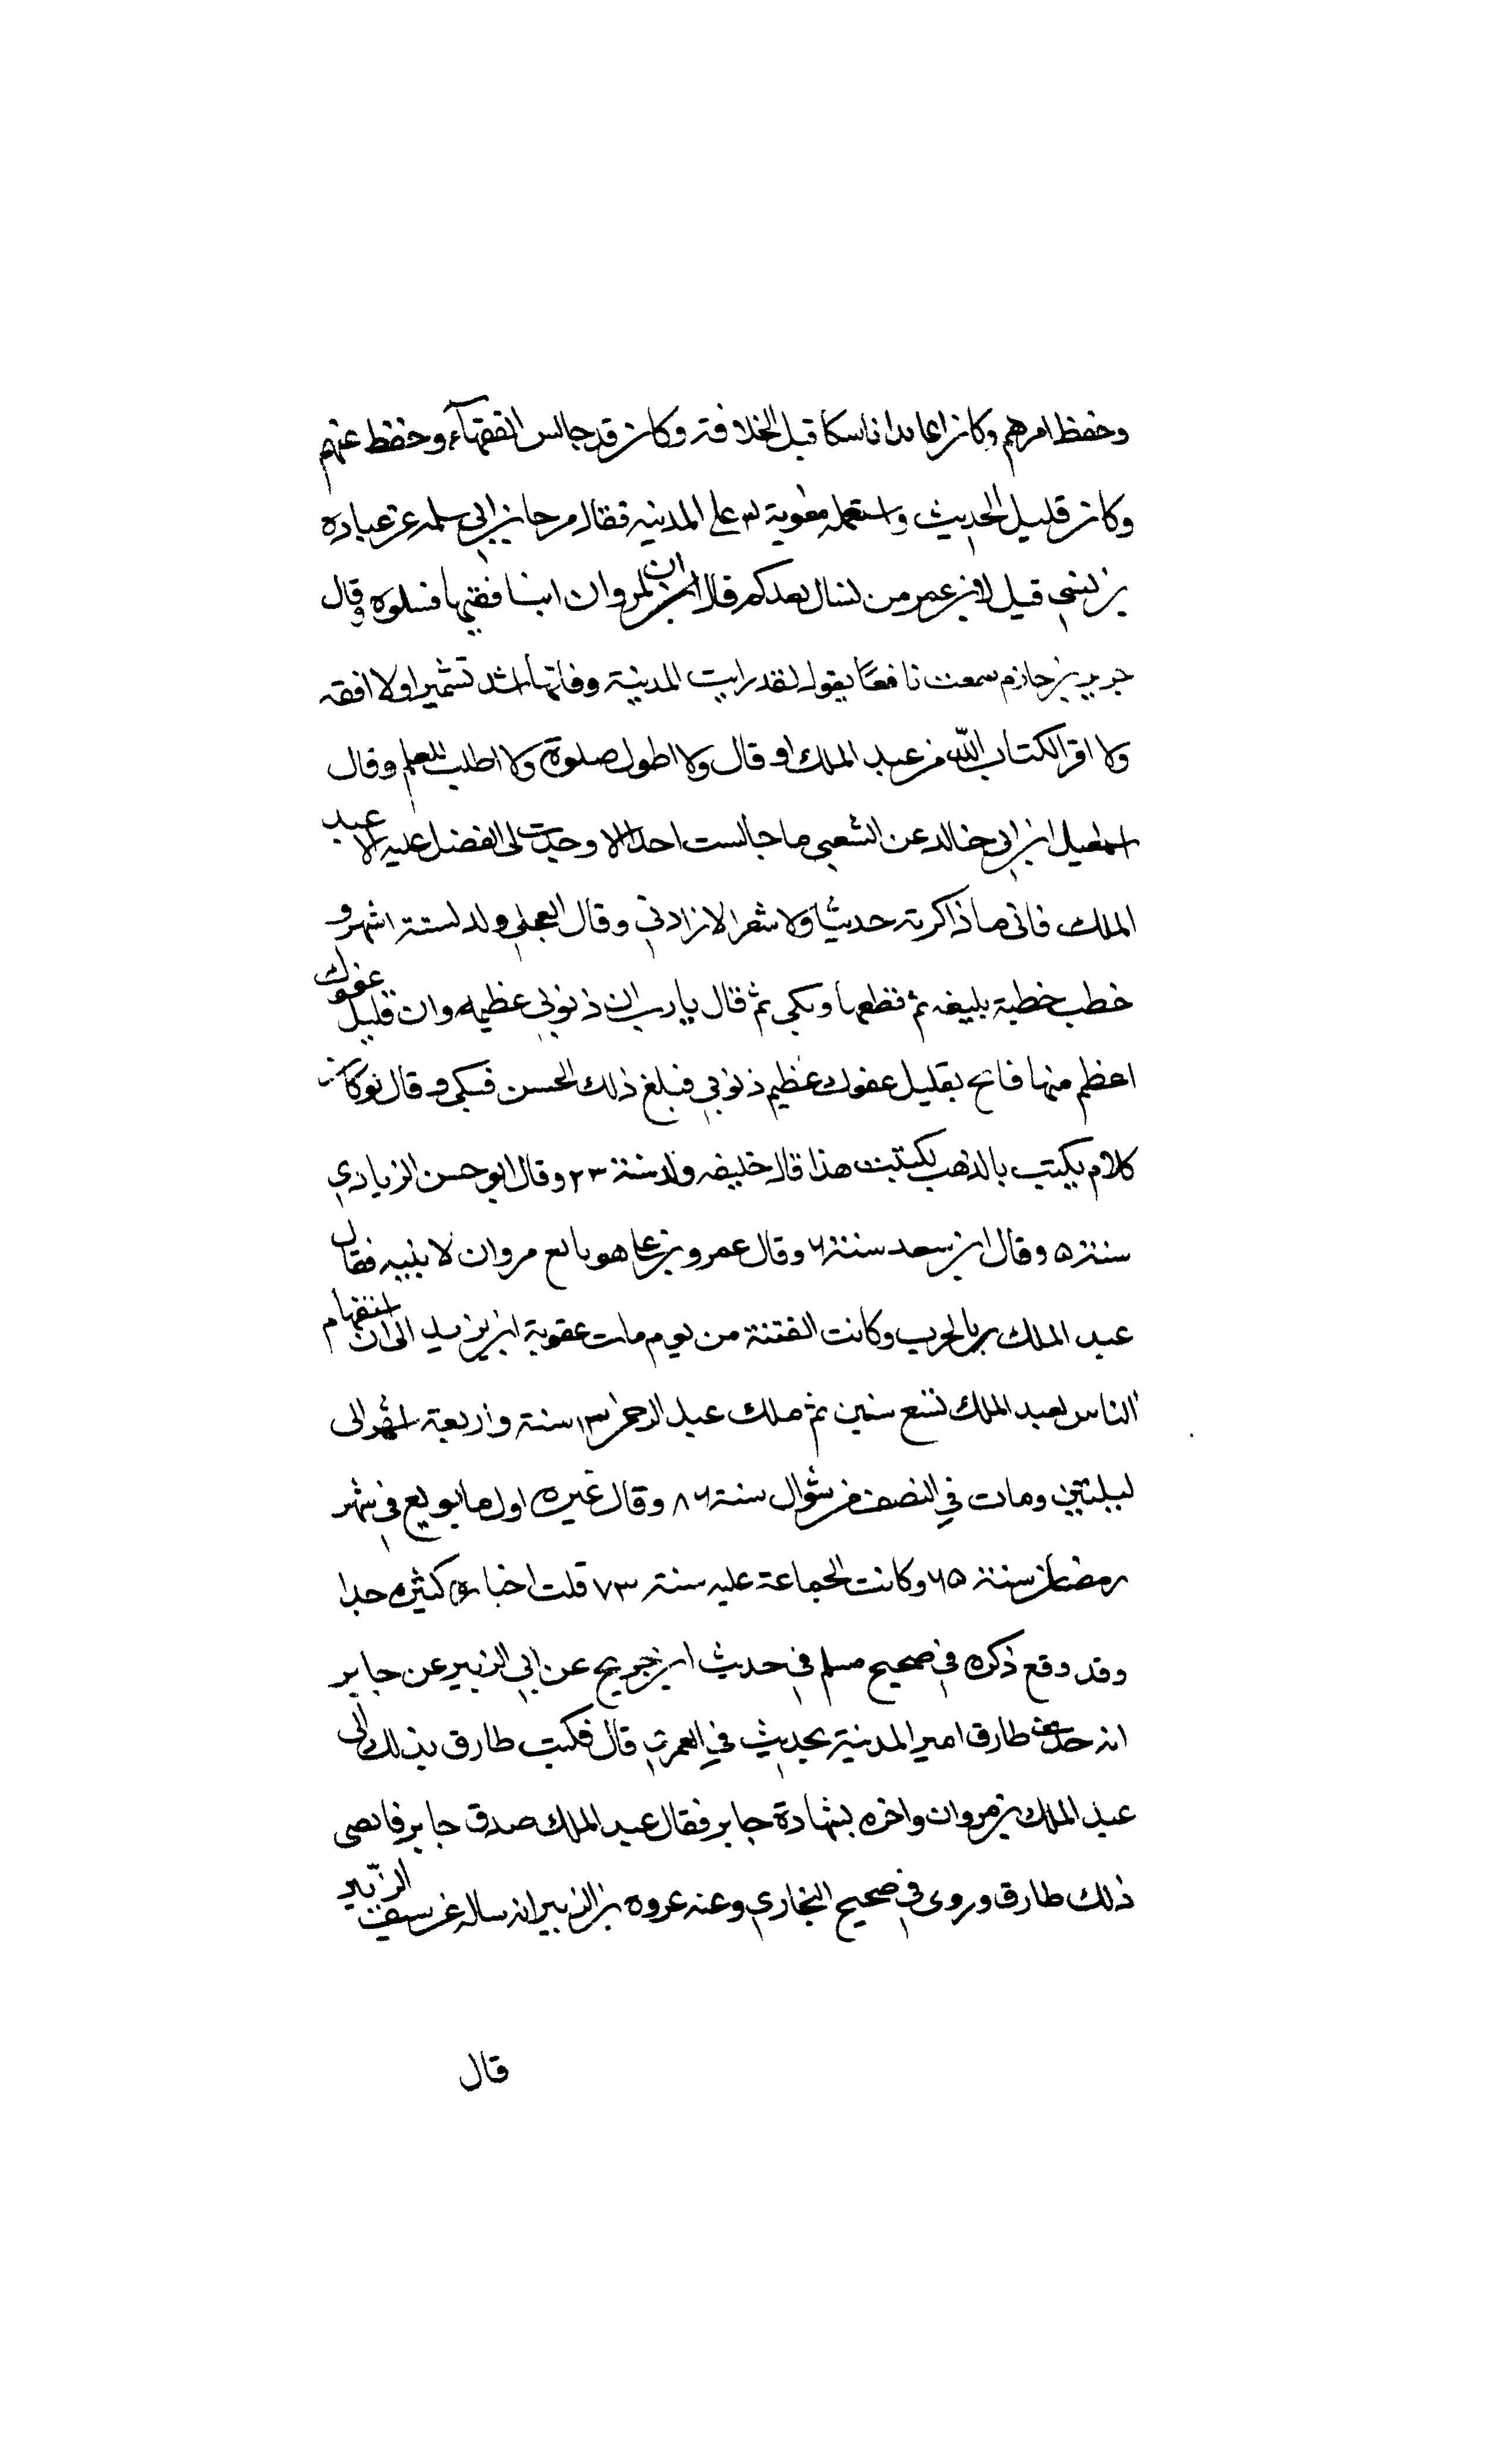 وحفظ امرهم وكان عابدا ناسكا قبل الخلافة وكان قد جالس الفقهآء وحفظ عنهم
وكان قليل الحديث واستعمله معوية على المدينه فقال رجا بن ابي سلمه عن عباده
بن نسي قيل لابن عمر من نسال بعدكم قال ان لمروان ابنا فقيها فسلوه وقال
جرير بن حازم سمعت نافعًا يقول لقد رايت المدينة وفاتها اشد تشميرا ولا افقه
ولا اقرا لكتاب الله من عبد الملك او قال ولا اطول صلوة ولا اطلب للعلم وقال
اسمعيل ابن ابي خالد عن الشعبي ما جالست احدا الا وجدت لى الفضل عليه الا عبد
الملك فانى ما ذاكرته حديثا ولا شعرا الا زادني وقال العجلي ولد لستة اشهر و
خطب خطبة بليغه ثم قطعها وبكى ثم قال يارب ان ذنوبي عظيمه وان قليل عفوك
اعظم منها فامح بقليل عفوك عظيم ذنوبي فبلغ ذلك الحسن فبكى وقال لو كان
كلام يكتب بالذهب لكتبت هذا قال خليفه ولد سنة ٢٣ وقال ابو حسن الزيادي
سنة ٥ وقال ابن سعد سنة ٦ وقال عمرو بن على هو بايع مروان لابنيه فقال
عبد الملك بالحرب وكانت الفتنة من يوم مات عقوبة ابن يزيد الى ان استقهام
الناس لعبد الملك تسع سنين ثم ملك عبد الرحمن ١٣ سنة واربعة اشهر الى
لبلتين ومات في النصف من شوال سنة ٨٦ وقال غيره اول ما بويع في شهر
رمضان سنة ٦٥ وكانت الجماعة عليه سنة ٧٣ قلت اخباره كثيره جدا
وقد وقع ذكره في صحيح مسلم في حديث ابن جريج عن ابي الزبير عن جابر
انه حدث طارق امير المدينة بحديث في العمرى قال فكتب طارق بذلك الى
عبد الملك بن مروان واخره بشهادة جابر فقال عبد الملك صدق جابر فامضى
ذلك طارق وروى في صحيح البخاري وعنه عروه بن الزبير انه ساله عن سيف الزبير
قال